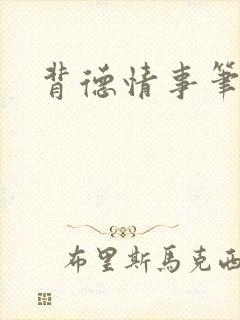 背德情事筆
布里斯馬克西